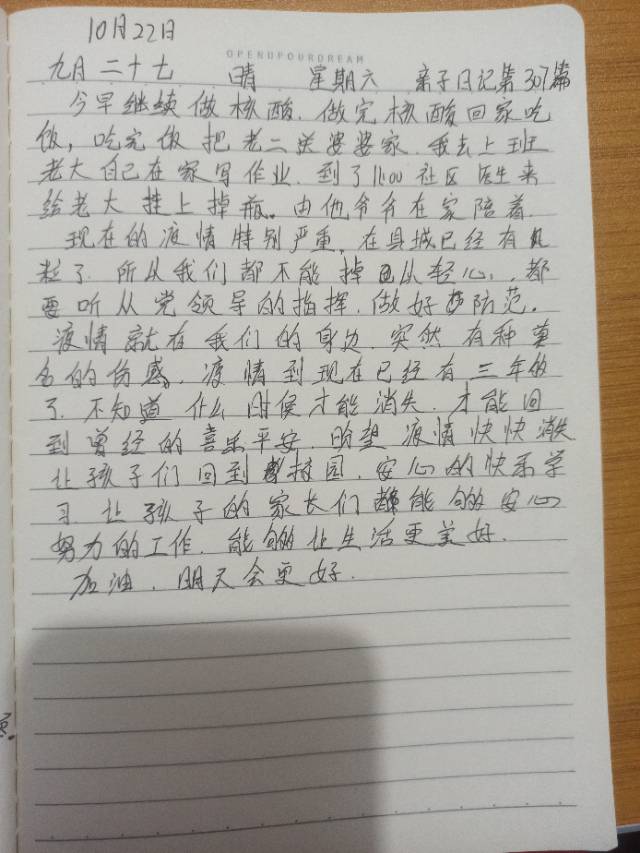 10月22日
OPENUPOURDREAM
九月二十七 晴 星期六 亲子日记第307篇
今早继续做核酸.做完核酸回家吃
饭,吃完饭把老二送婆婆家.我去上班
老大自己在家写作业.到了11:00社区医生来
给老大挂上掉瓶。由他爷爷在家陪着.
现在的疫情特别严重.在县城已经有几
粒了.所从我们都不能掉以从轻心,都
要听从党领导的指挥.做好防范。
疫情就在我们的身边.突然有种莫
名的伤感.疫情到现在已经有三年的
了.不知道什么时候才能消失.才能回
到曾经的喜乐平安.盼望疫情快快消失
让孩子们回到校园.安心的快乐学
习.让孩子的家长们都能够的安心
努力的工作.能够的让生活更美好.
加油.明天会更好.